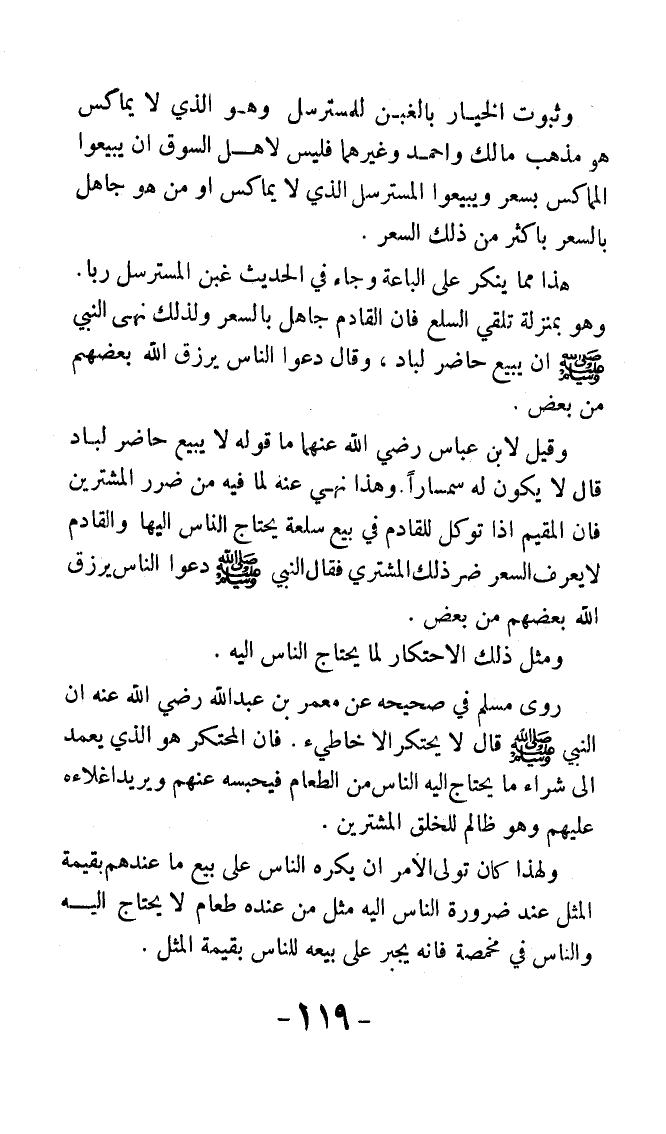 وثبوت الخيار بالغبن للمسترسل وهو الذي لا يماكس
هو مذهب مالك واحمد وغيرهما فليس لاهل السوق ان يبيعوا
المماكس بسعر ويبيعوا المسترسل الذي لا يماكس او من هو جاهل
بالسعر باكثر من ذلك السعر .
هذا مما ينكر على الباعة وجاء في الحديث غبن المسترسل ربا.
وهو بمنزلة تلقي السلع فان القادم جاهل بالسعر ولذلك نهى النبي
ﷺ ان يبيع حاضر لباد ، وقال دعوا الناس يرزق الله بعضهم
من بعض .
وقيل لابن عباس رضي الله عنهما ما قوله لا يبيع حاضر لباد
قال لا يكون له سمساراً. وهذا نهي عنه لما فيه من ضرر المشترين
فان المقيم اذا توكل للقادم في بيع سلعة يحتاج الناس اليها والقادم
لا يعرف السعر ضر ذلك المشتري فقال النبي ﷺ دعوا الناس يرزق
الله بعضهم من بعض .
ومثل ذلك الاحتكار لما يحتاج الناس اليه .
روى مسلم في صحيحه عن معمر بن عبدالله رضي الله عنه ان
النبي ﷺ قال لا يحتكر الا خاطيء . فان المحتكر هو الذي يعمد
الى شراء ما يحتاج اليه الناس من الطعام فيحبسه عنهم ويريد اغلاءه
عليهم وهو ظالم للخلق المشترين .
ولهذا كان تولى الأمر ان يكره الناس على بيع ما عندهم بقيمة
المثل عند ضرورة الناس اليه مثل من عنده طعام لا يحتاج اليه
والناس في مخمصة فانه يجبر على بيعه للناس بقيمة المثل .
- ١١٩ -